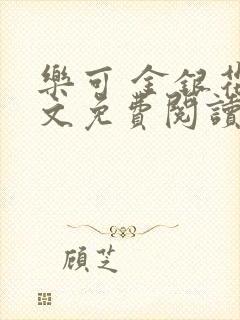 樂可 金銀花
文免費閱讀
顾芝